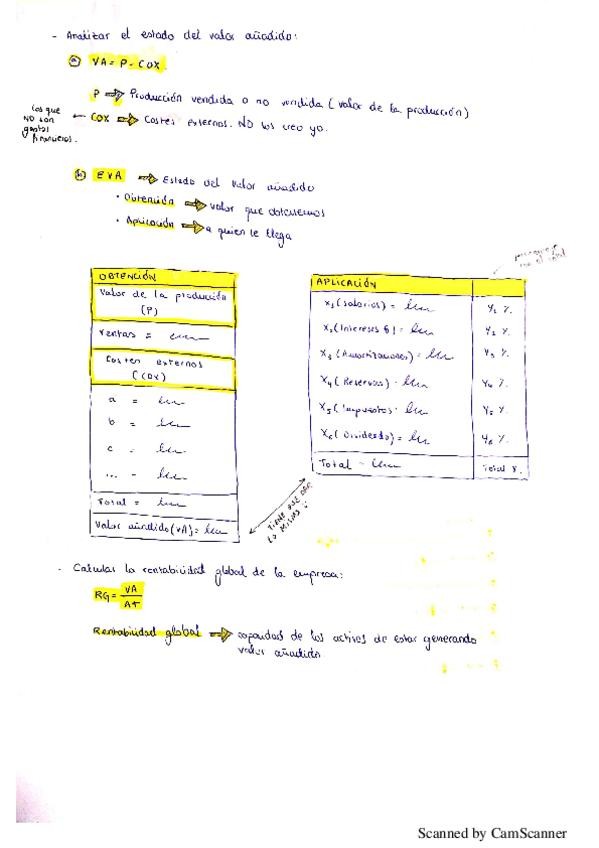 - Analizar el estado del valor añadido:
a) VA = P - COX.
P ⇒ Producción vendida o no vendida (valor de la producción)
los que NO son gastos financieros. ← COX ⇒ Costes externos. NO los creo yo.
b) EVA ⇒ Estado del valor añadido
· Obtención ⇒ valor que obtenemos
· Aplicación ⇒ a quien le llega
OBTENCIÓN
Valor de la producción
(P)
Ventas =
Costes externos
(COX)
a =
b =
c =
... -
Total =
Valor añadido (VA) =
APLICACIÓN
X₁ (Salarios) = Y₁ %.
X₂ (Intereses) = Y₂ %.
X₃ (Amortizaciones) = Y₃ %.
X₄ (Reservas) - Y₄ %.
X₅ (Impuestos) - Y₅ %.
X₆ (Dividendo) = Y₆ %.
Total - Total %.
TIENE QUE DAR
LO MISMO
- Calcular la rentabilidad global de la empresa:
RG = VA / AT
Rentabilidad global ⇒ capacidad de los activos de estar generando
valor añadido.
Scanned by CamScanner